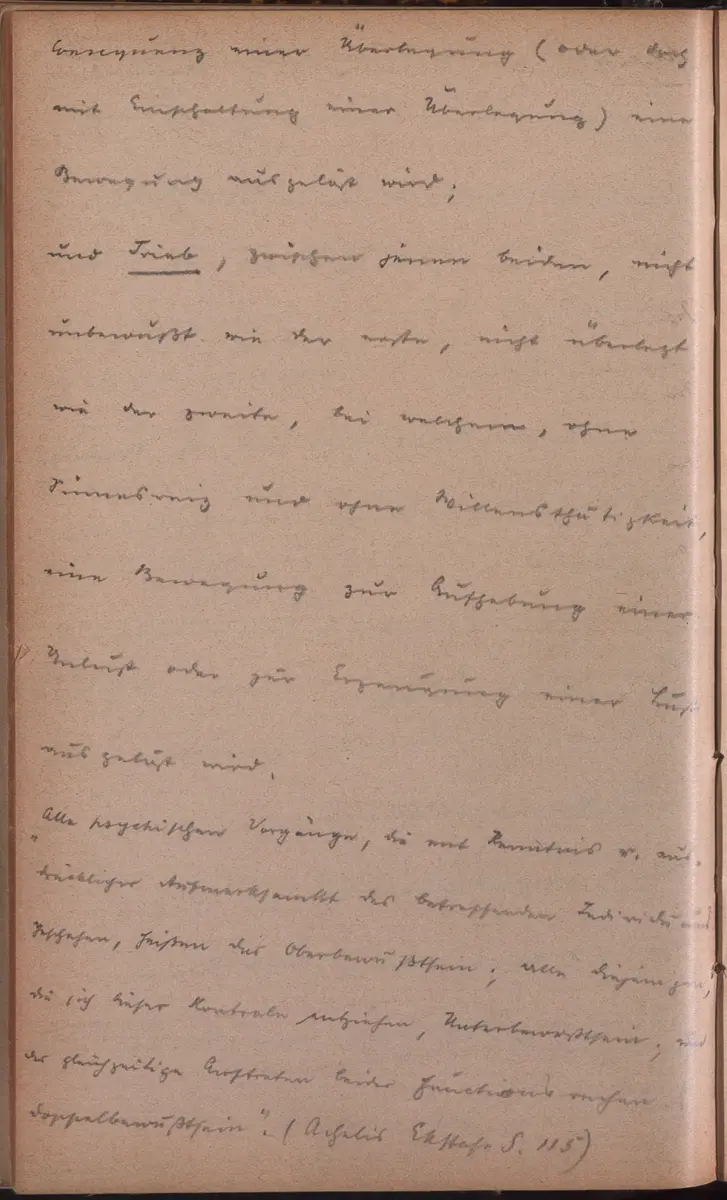 Consequenz einer Überlegung (oder doch
mit Einschaltung einer Überlegung) eine
Bewegung ausgelöst wird;
und Trieb, zwischen jenen beiden, nicht
unbewußt wie der erste, nicht überlegt
wie der zweite, bei welchem, ohne
Sinnesreiz und ohne Willensthätigkeit,
eine Bewegung zur Aufhebung einer
Unlust oder zur Erzeugung einer Lust
ausgelöst wird.
"Alle psychischen Vorgänge, die mit Kenntnis u. aus-
drücklicher Aufmerksamkt des betreffenden Individuums
geschehen, heißen das Oberbewußtsein; alle diejenigen,
die sich dieser Kontrole entziehen, Unterbewußtsein; und
das gleichzeitige Auftreten beider Functionsreihen
Doppelbewußtsein". (Achelis Ekstase S. 115)